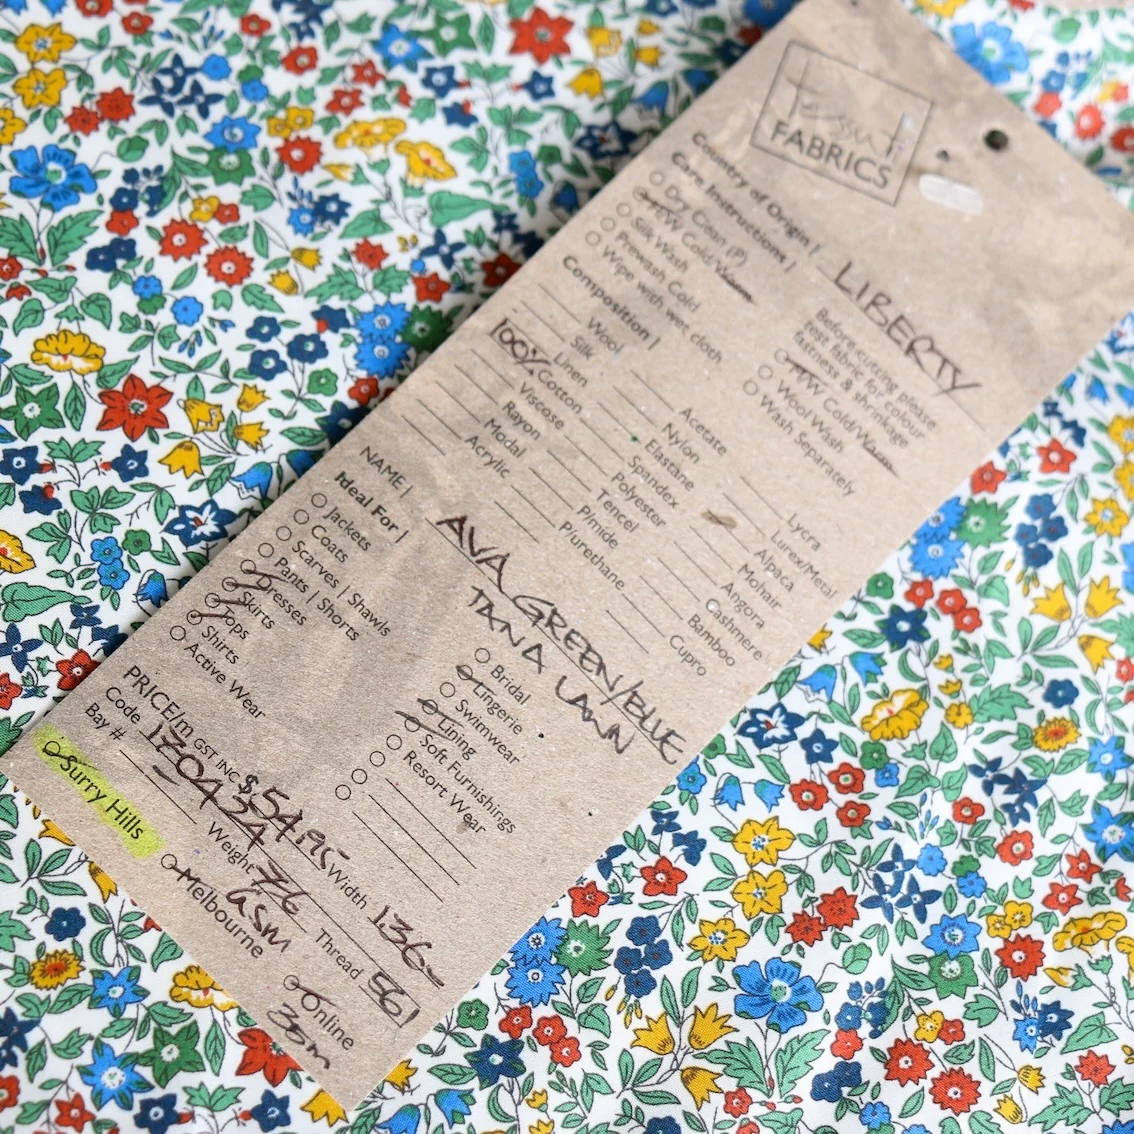 tessuti
FABRICS
Country of Origin | LIBERTY
Care Instructions |
Before cutting please
test fabric for colour
fastness & shrinkage
Dry Clean (P)
H/W Cold/Warm
Silk Wash
Prewash Cold
Wipe with wet cloth
M/W Cold/Warm
Wool Wash
Wash Separately
Composition |
Wool
Silk
Linen
100% Cotton
Viscose
Rayon
Modal
Acrylic
Acetate
Nylon
Elastane
Spandex
Polyester
Tencel
P/mide
P/urethane
Lycra
Lurex/Metal
Alpaca
Mohair
Angora
Cashmere
Bamboo
Cupro
NAME | AVA GREEN/BLUE
TANA LAWN
Ideal For |
Jackets
Coats
Scarves | Shawls
Pants | Shorts
Dresses
Skirts
Tops
Shirts
Active Wear
Bridal
Lingerie
Swimwear
Lining
Soft Furnishings
Resort Wear
PRICE/m GST INC $54.95 Width 136
Code Weight 76 GSM Thread 561
Bay #
Surry Hills Melbourne Online
30m